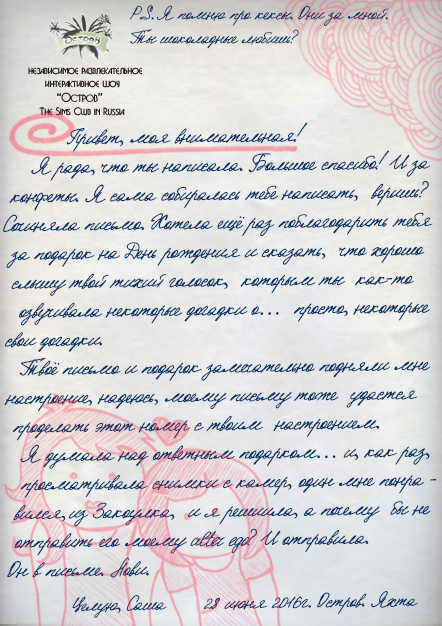 P.S. Я помню про кексы. Они за мной.
Ты шоколадные любишь?
ОСТРОВ
НЕЗАВИСИМОЕ РАЗВЛЕКАТЕЛЬНОЕ
ИНТЕРАКТИВНОЕ ШОУ
"ОСТРОВ"
THE SIMS CLUB IN RUSSIA
Привет, моя внимательная!
Я рада, что ты написала. Большое спасибо! И за
конфеты. Я сама собиралась тебе написать, веришь?
Сочиняла письмо. Хотела ещё раз поблагодарить тебя
за подарок на День рождения и сказать, что хорошо
слышу твой тихий голосок, которым ты как-то
озвучивала некоторые догадки о... просто, некоторые
свои догадки.
Твоё письмо и подарок замечательно подняли мне
настроение, надеюсь, моему письму тоже удастся
проделать этот номер с твоим настроением.
Я думала над ответным подарком... и, как раз,
просматривала снимки с камер, один мне понра-
вился, из Закоулка, и я решила, а почему бы не
отправить его моему alter ego? И отправила.
Он в письме. Лови.
Целую, Саша 28 июня 2016г. Остров. Яхта